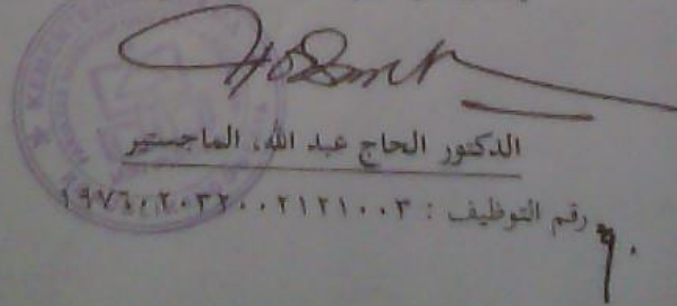 KEMENTER
الدكتور الحاج عبد الله، الماجستير
رقم التوظيف : ١٩٧٦٠٢٠٣٢٠٠٢١٢١٠٠٣